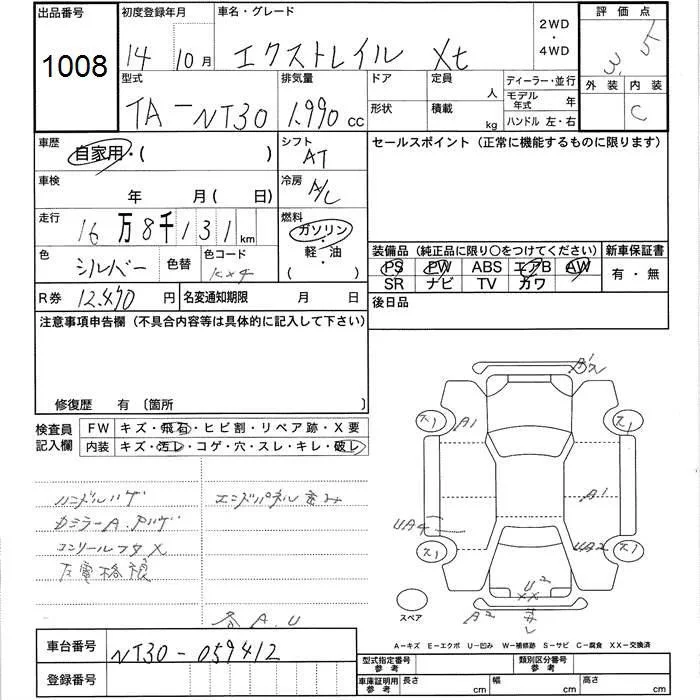 出品番号 初度登録年月 車名・グレード 2WD・4WD 評価点
1008 14 10月 エクストレイル Xt 3.5
型式 排気量 ドア 定員 人 ディーラー・並行 外装 内装
TA-NT30 1.990 cc 形状 積載 kg モデル年式 年 C
ハンドル 左・右
車歴 自家用・( ) シフト AT セールスポイント(正常に機能するものに限ります)
車検 年 月( 日) 冷房 A/C
走行 16万8千131km 燃料 ガソリン・軽・油 ( )
色 シルバー 色替 色コード KX4
装備品(純正品に限り○をつけてください) 新車保証書
PS PW ABS エアB AW 有・無
SR ナビ TV カワ
R券 12.470円 名変通知期限 月 日 後日品
注意事項申告欄(不具合内容等は具体的に記入して下さい)
修復歴 有 〔箇所 〕
検査員記入欄 FW キズ・飛石・ヒビ割・リペア跡・X要
内装 キズ・汚レ・コゲ・穴・スレ・キレ・破レ
ハンドルハゲ エンドパネル歪み
カミラーA.ハゲ
コンソールフタX
左電格損
各A.U
A1
A1
UA4
UA2
U2
XX
A2
スペア
A-キズ E-エクボ U-凹み W-補修跡 S-サビ C-腐食 XX-交換済
車台番号 NT30-059412
登録番号
型式指定番号 参考 類別区分番号 参考
車庫証明用 参考 長さ cm 幅 cm 高さ cm